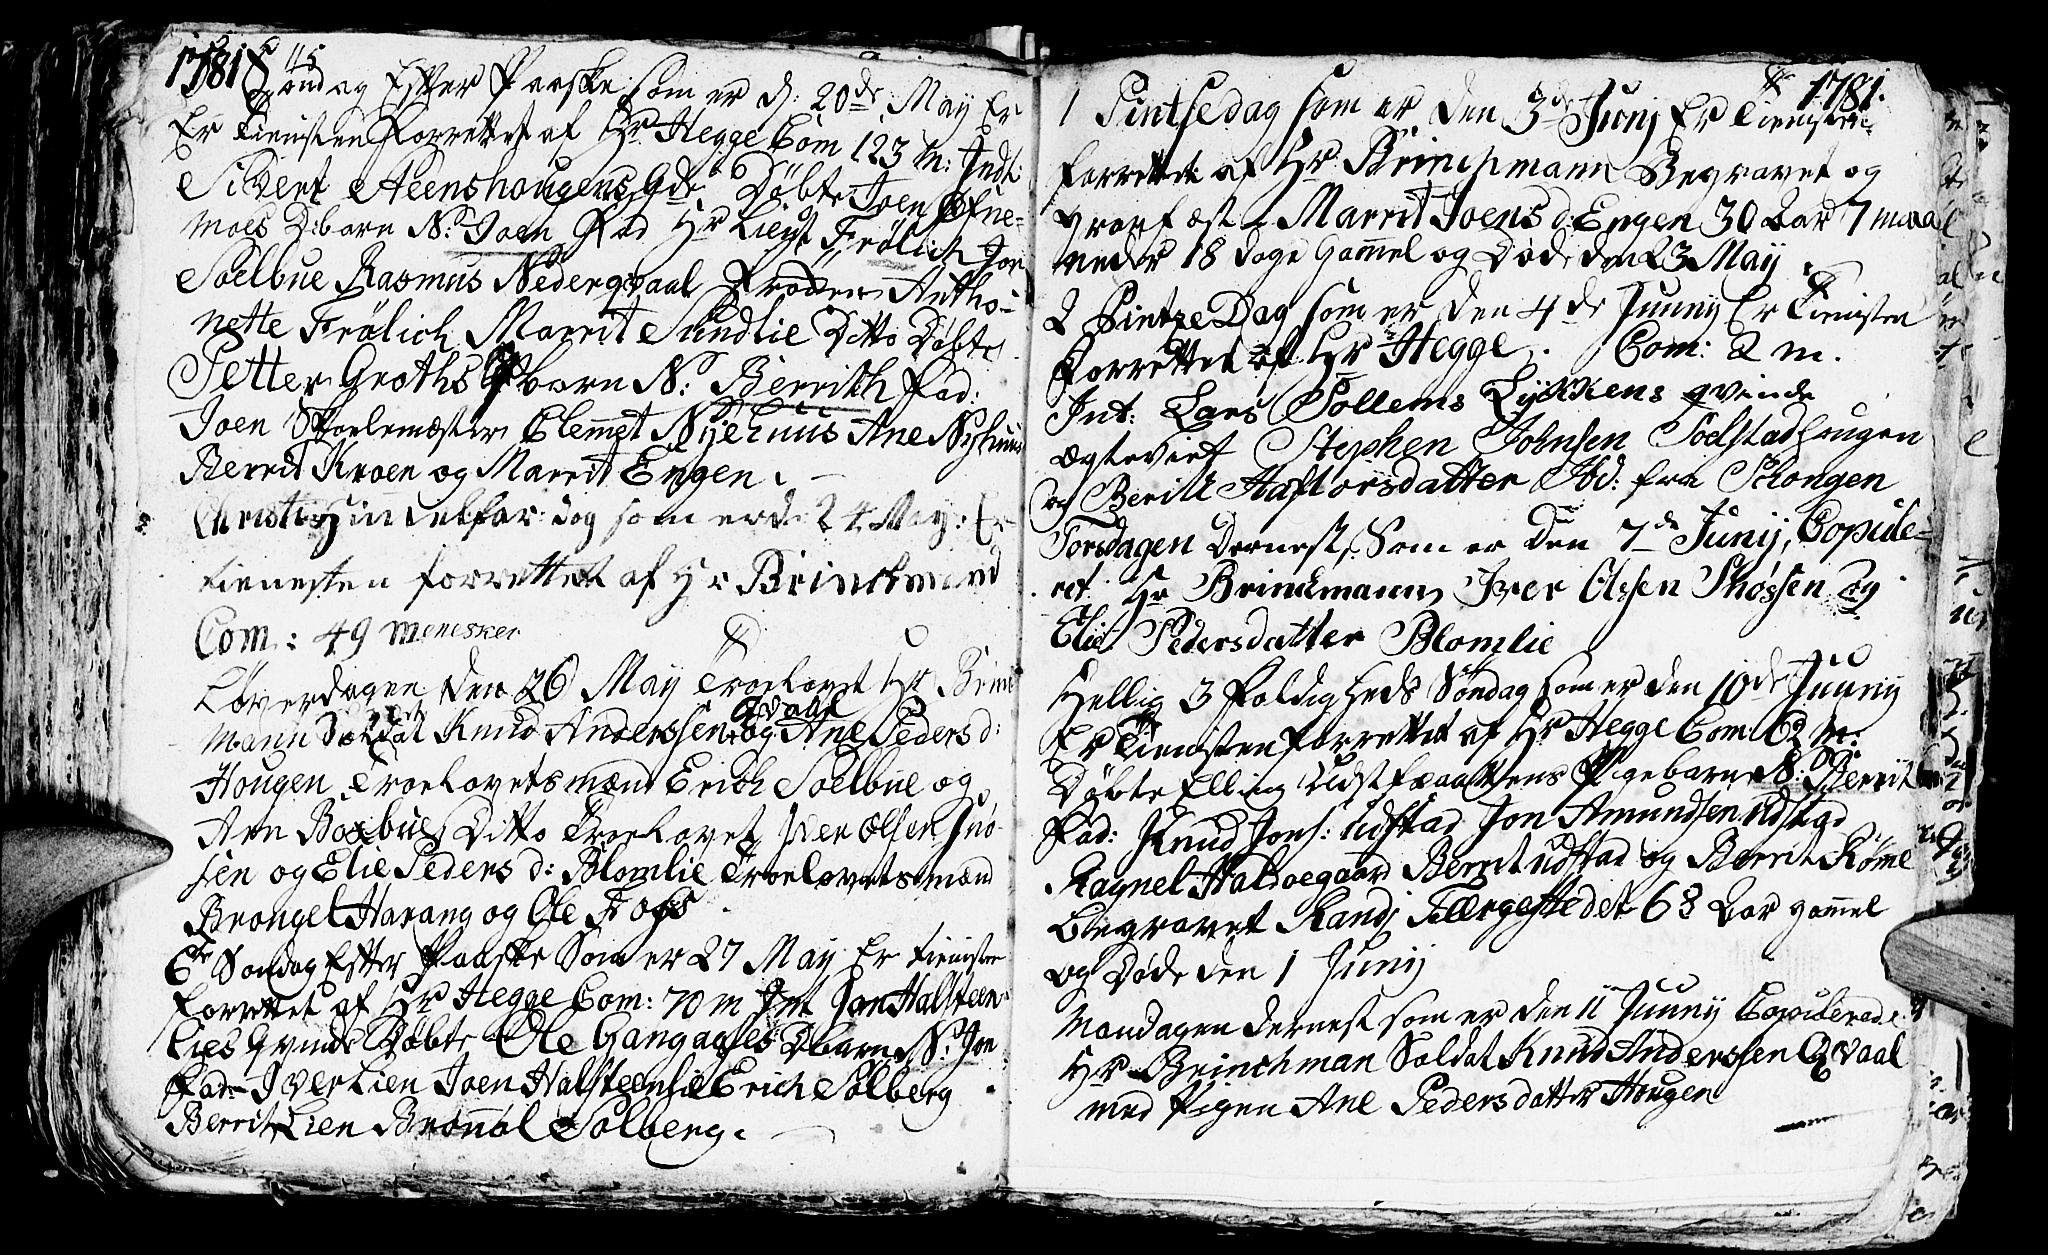 1781 115
Søndag Efter Paaske som er d: 20de May Er
Er Tienisten Forrettet af Hr Hegge Com 123 m: Indl:
Sivert Aeenshougens qde Døbte Joen Efne-
moes D:barn N: Joen Fad Hr Lieut Frølich Jon
Soelbue Rasmus Nedergvaal Frøcken Antho-
nette Frølich Marrit Sundlie Ditto Døbte
Petter Groths P barn N: Berrith Fad:
Joen Skolemæster Clemmet Nyehuus Ane Nyhuus
Berrit Kroen og Marrit Engen.
Christi Himmelfar: dag som er d: 24 May: Er
tienesten forrettet af Hr Brinchmand
Com: 49 Menesker
Løverdagen den 26 May Troelovet Hr Brinc
mann Soldat Knud Anderssen Qvaal og Ane Peders d:
Hougen Troelovetsmænd Erich Soelbue og
Arn Boxbue Ditto Troelovet Iver Olsen
sen og Elie Peders d: Blomlie Troelovetsmænd
Brongel Harang og Ole Fogs
6te Søndag Efter Paaske Som er 27 May Er tienisten
forrettet af Hr Hegge Com: 70 m Int Jon Halsteen-
lies Qvinde Døbte Ole Gangaases Dbarn N: Jon
Fad: Iver Lien Joen Halsteenlie Erich Solberg
Berrit Lien Brønnøl Solberg.
1781.
1 Pintsedag som er den 3de Junj Er Tienisten
forrettet af Hr Brinchmann Begravet og
Graafæst Marrit Joens d: Engen 30 Aar 7 maa
neder 18 dage Gammel og Døde den 23 May
2 Pintze Dag som er den 4de Juunij Er Tienisten
Forrettet af Hr Hegge. Com: 2 m.
Int: Lars Sollems Lykkens qvinde
Ægteviet Stephen Johnsen Soelstadhougen
og Berith Haftorsdatter Ibd: fra Schongen
Torsdagen Dernest, Som er den 7de Junij, Copule-
ret Hr Brinchmann Iver Olssen Skøssen og
Elie Pedersdatter Blomlie
Hellig 3 Foldigheds Søndag som er den 10de Juunij
Er Tienisten forrettet af Hr Hegge Com 62 m:
Døbte Elling Pigebarn N: Berrit
Fad: Knud Jons: udstad Jon Amundsen udstad
Ragnel Haldoegaard Berrit udstad og Berrit Røme
Begravet Randi Tællergestedet 68 Aar gammel
og Døde den 1 Junij
Mandagen dernest som er den 11 Juunij Copulerede
Hr Brinchman Soldat Knud Anderssen Qvaal
med Pigen Ane Pedersdatter Hougen